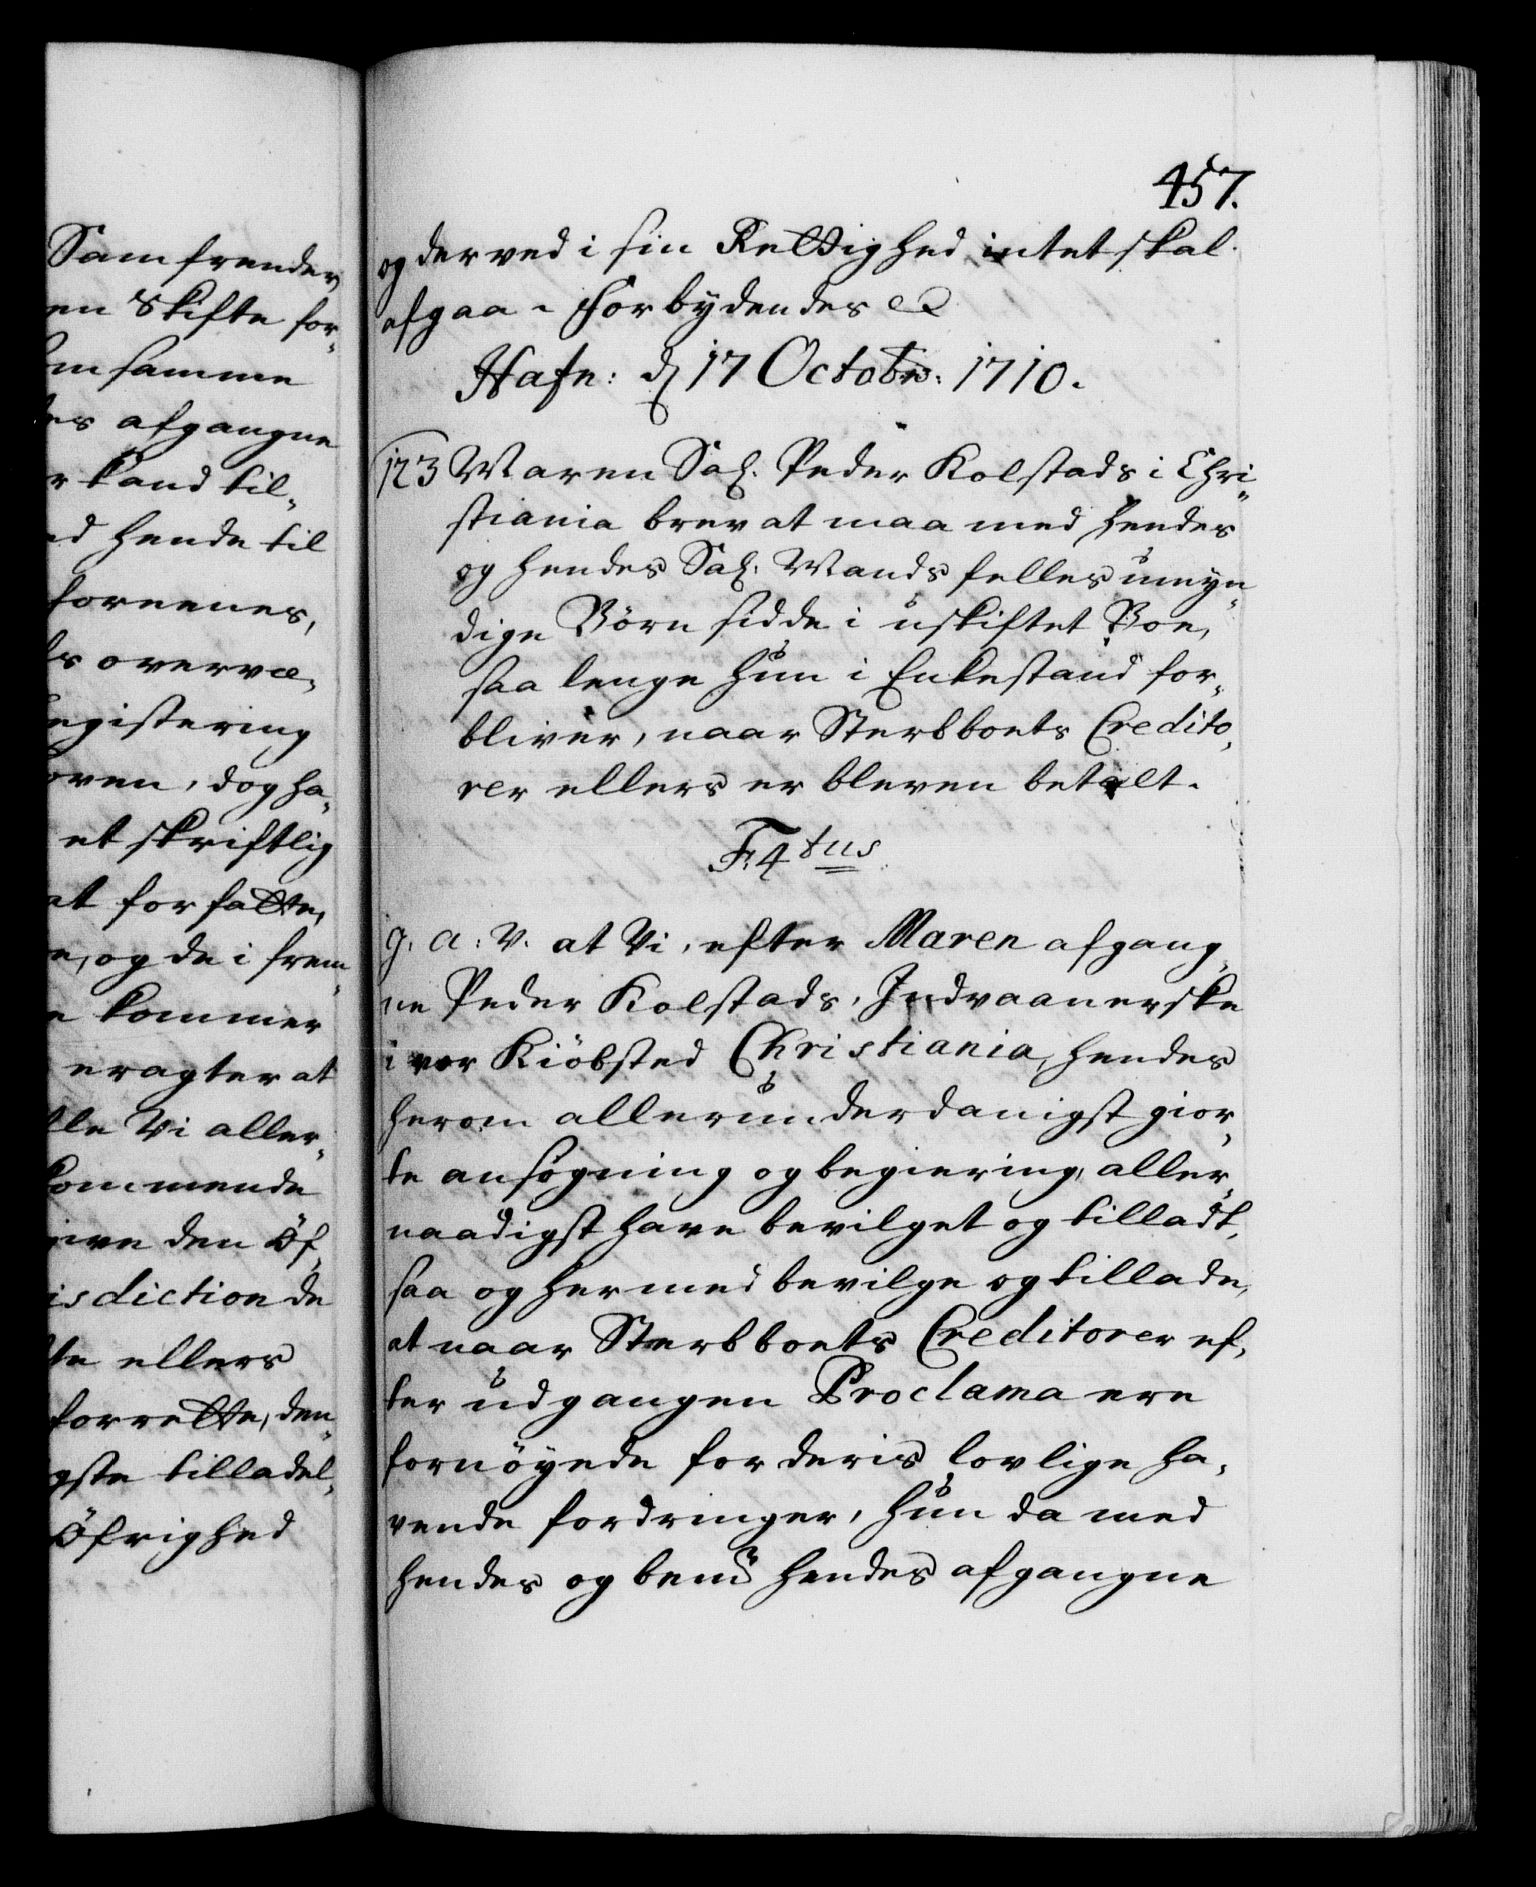 Samfrender
en Skifte for-
om samme
es afgangne
r kand til-
ed hende til
fornemes,
ds overvæ-
egistering
oren, dog ha-
et skriftlig
at forfatte,
e, og de i frem-
e kommer
eragter at
lle Vi aller-
kommende
give den Öf-
isdiction de
te ellers
forrette, den
gste tilladel-
Öfrighed
457.
og derved i sin Rettighed intet skal
afgaa. Forbydendes &
Hafn: d 17 Octobr: 1710.
123 Maren Sal. Peder Kolstads i Chri-
stiania brev at maa med hendes
og hendes Sal: Mands felles umyn-
dige Börn sidde i uskiftet Boe,
saa lenge hun i Enkestand for-
bliver, naar Sterbboets Credito-
rer ellers er bleven betalt.
F. 4tus
G. A: V. at Vi, efter Maren afgang-
ne Peder Kolstads, Indvaanerske
i vor Kiöbsted Christiania, hendes
herom allerunderdanigst gior-
te ansögning og begiering, aller-
naadigst have bevilget og tilladt,
saa og hermed bevilge og tillade,
at naar Sterbboets Creditorer ef-
ter udgangen Proclama ere
fornöyede for deris lovlige ha-
vende fordringer, hun da med
hendes og bemte hendes afgangne